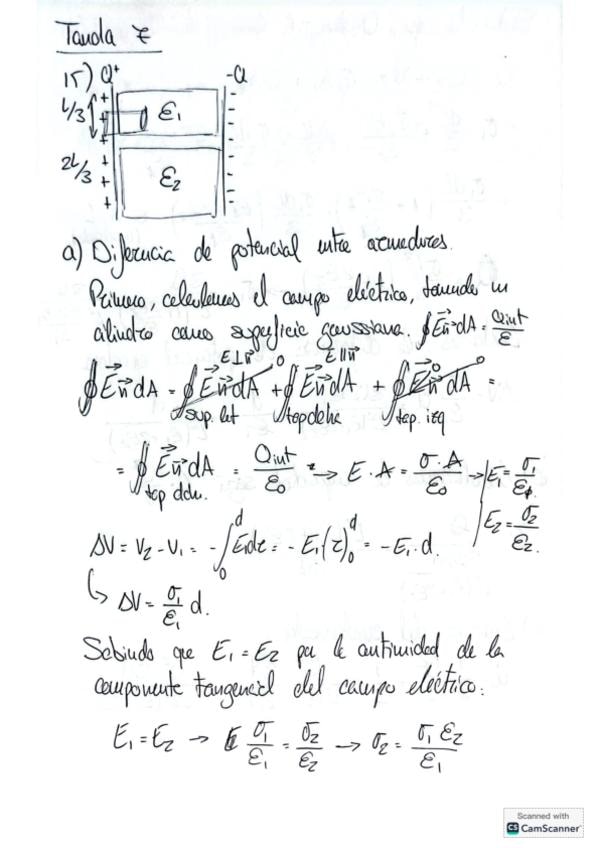 Tanda 7
15) Q+ -Q
L/3 ε₁
2L/3 ε₂
a) Diferencia de potencial entre armaduras.
Primero, calculemos el campo eléctrico, tomando un
cilindro como superficie gaussiana. ∮E⃗n⃗dA = Qint/ε
E⊥n⃗ 0 E∥n⃗ 0
∮E⃗n⃗dA = ∮E⃗n⃗dA + ∮E⃗n⃗dA + ∮E⃗n⃗dA =
sup. lat tapa dcha tap. izq
= ∮E⃗n⃗dA = Qint/ε₀ → E·A = σ·A/ε₀ → E₁ = σ₁/ε₁
tap dch. E₂ = σ₂/ε₂
ΔV = V₂ - V₁ = -∫₀ᵈ E₁dz = -E₁(z)₀ᵈ = -E₁·d.
↳ ΔV = σ₁/ε₁ d.
Sabiendo que E₁ = E₂ por la continuidad de la
componente tangencial del campo eléctrico:
E₁ = E₂ → σ₁/ε₁ = σ₂/ε₂ → σ₂ = σ₁ε₂/ε₁
Scanned with
CS CamScanner